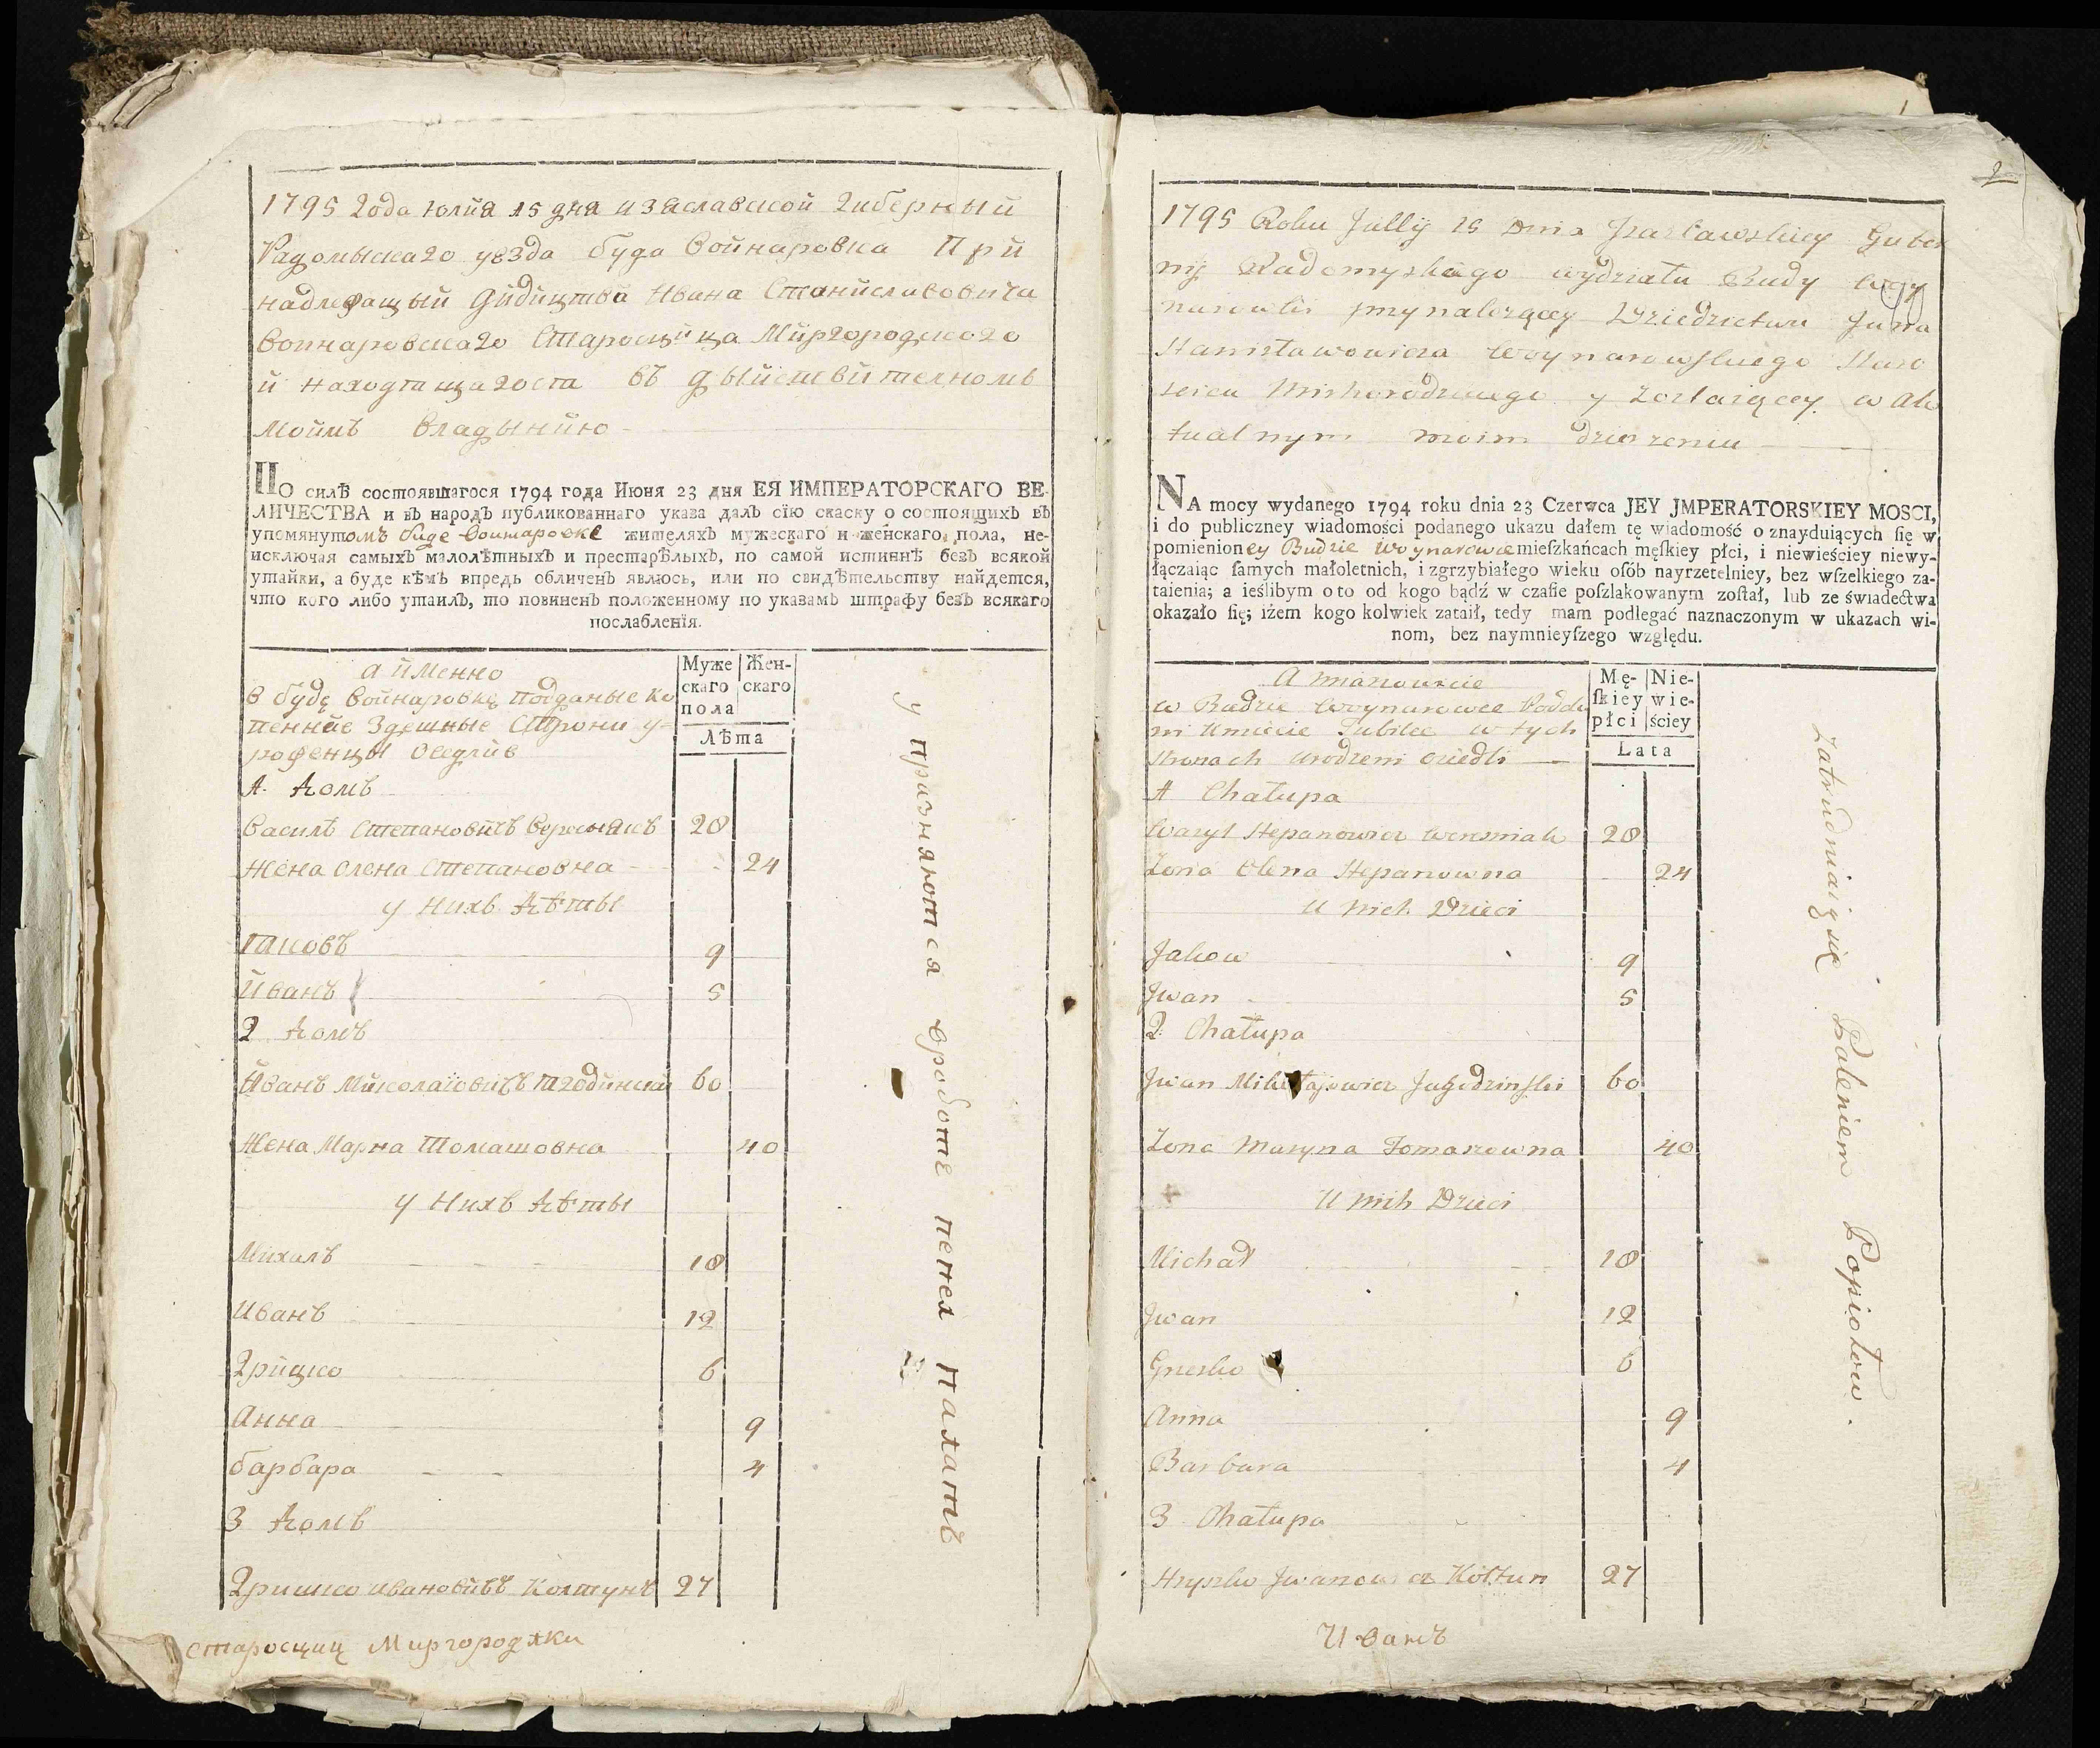 1795 Года Юлия 15 дня Изяславской Гиберныи
Радомыскаго уезда буда Войнаровка При
надлежащый Дидицтва Ивана Станиславовича
Войнаровскаго Старосцица Миргородского
и находящагося въ дыйствителномъ
Моимъ владынию
ПО силѣ состоявшагося 1794 года Июня 23 дня ЕЯ ИМПЕРАТОРСКАГО ВЕ-
ЛИЧЕСТВА и въ народъ публикованнаго указа далъ сїю скаску о состоящихъ въ
упомянутомъ буде Войнаровке жителяхъ мужескаго и женскаго пола, не-
исключая самыхъ малолѣтныхъ и престарѣлыхъ, по самой истиннѣ безъ всякой
утайки, а буде кѣмъ впредь обличенъ явлюсь, или по свидѣтельству найдется,
что кого либо утаилъ, то повиненъ положенному по указамъ штрафу безъ всякаго
послабленїя.
а йменно
в будѣ Войнаровкѣ подданые ко
пеннйе Здешные Строни у-
роженцы оседлие
Муже Жен-
скаго скаго
пола
Лѣта
А. Домъ
Василъ Степановичъ 28
Жена Олена Степановна 24
у нихъ Дѣты
Яковъ 9
Иванъ 5
2 Домъ
Иванъ Миколаіовичъ Ягодинский 60
Жена Марна Томашовна 40
у Нихъ Дѣты
Михалъ 18
Иванъ 12
Грицко 6
Анна 9
барбара 4
3 Домъ
Гришко Ивановичъ Колтунъ 27
упразняются вроботе пенея палатъ
старосциц Миргородзки
2
1795 Roku Jullij 15 Dnia Jzasławskiey Guber
nij Radomyskiego wydziału Budy Woy
narowki przynależącey Dziedzictwu Jwana
Stanisławowicza Woynarowskiego Staro
ścica Mirhorodzkiego y Zostaiącey w Ak
tualnym moim dzierzeniu
NA mocy wydanego 1794 roku dnia 23 Czerwca JEY JMPERATORSKIEY MOSCI,
i do publiczney wiadomości podanego ukazu dałem tę wiadomość o znayduiących ſię w
pomienioney Budzie Woynarowce mieſzkańcach męſkiey płci, i niewieściey niewy-
łączaiąc ſamych małoletnich, i zgrzybiałego wieku oſób nayrzetelniey, bez wſzelkiego za-
taienia; a ieślibym oto od kogo bądź w czaſie poſzlakowanym zoſtał, lub ze świadectwa
okazało ſię; iżem kogo kolwiek zataił, tedy mam podlegać naznaczonym w ukazach wi-
nom, bez naymnieyſzego względu.
A mianowicie
w Budzie Woynarowce Podda
ni w tych
stronach urodzeni osiedli
Mę- Nie-
ſkiey wie-
płci ściey
Lata
A Chałupa
Wasyl Stepanowicz 28
Zona Olena Stepanowna 24
U nich Dzieci
Jakow 9
Jwan 5
2. Chałupa
Jwan Mikołajowicz Jagodzinski 60
Zona Maryna Tomaszowna 40
U nich Dzieci
Michał 18
Jwan 12
Grzesko 6
Anna 9
Barbara 4
3 Chałupa
Hryszko Jwanowicz Kołtun 27
Zatrudniaią się Paleniem Popiołow.
Иванъ